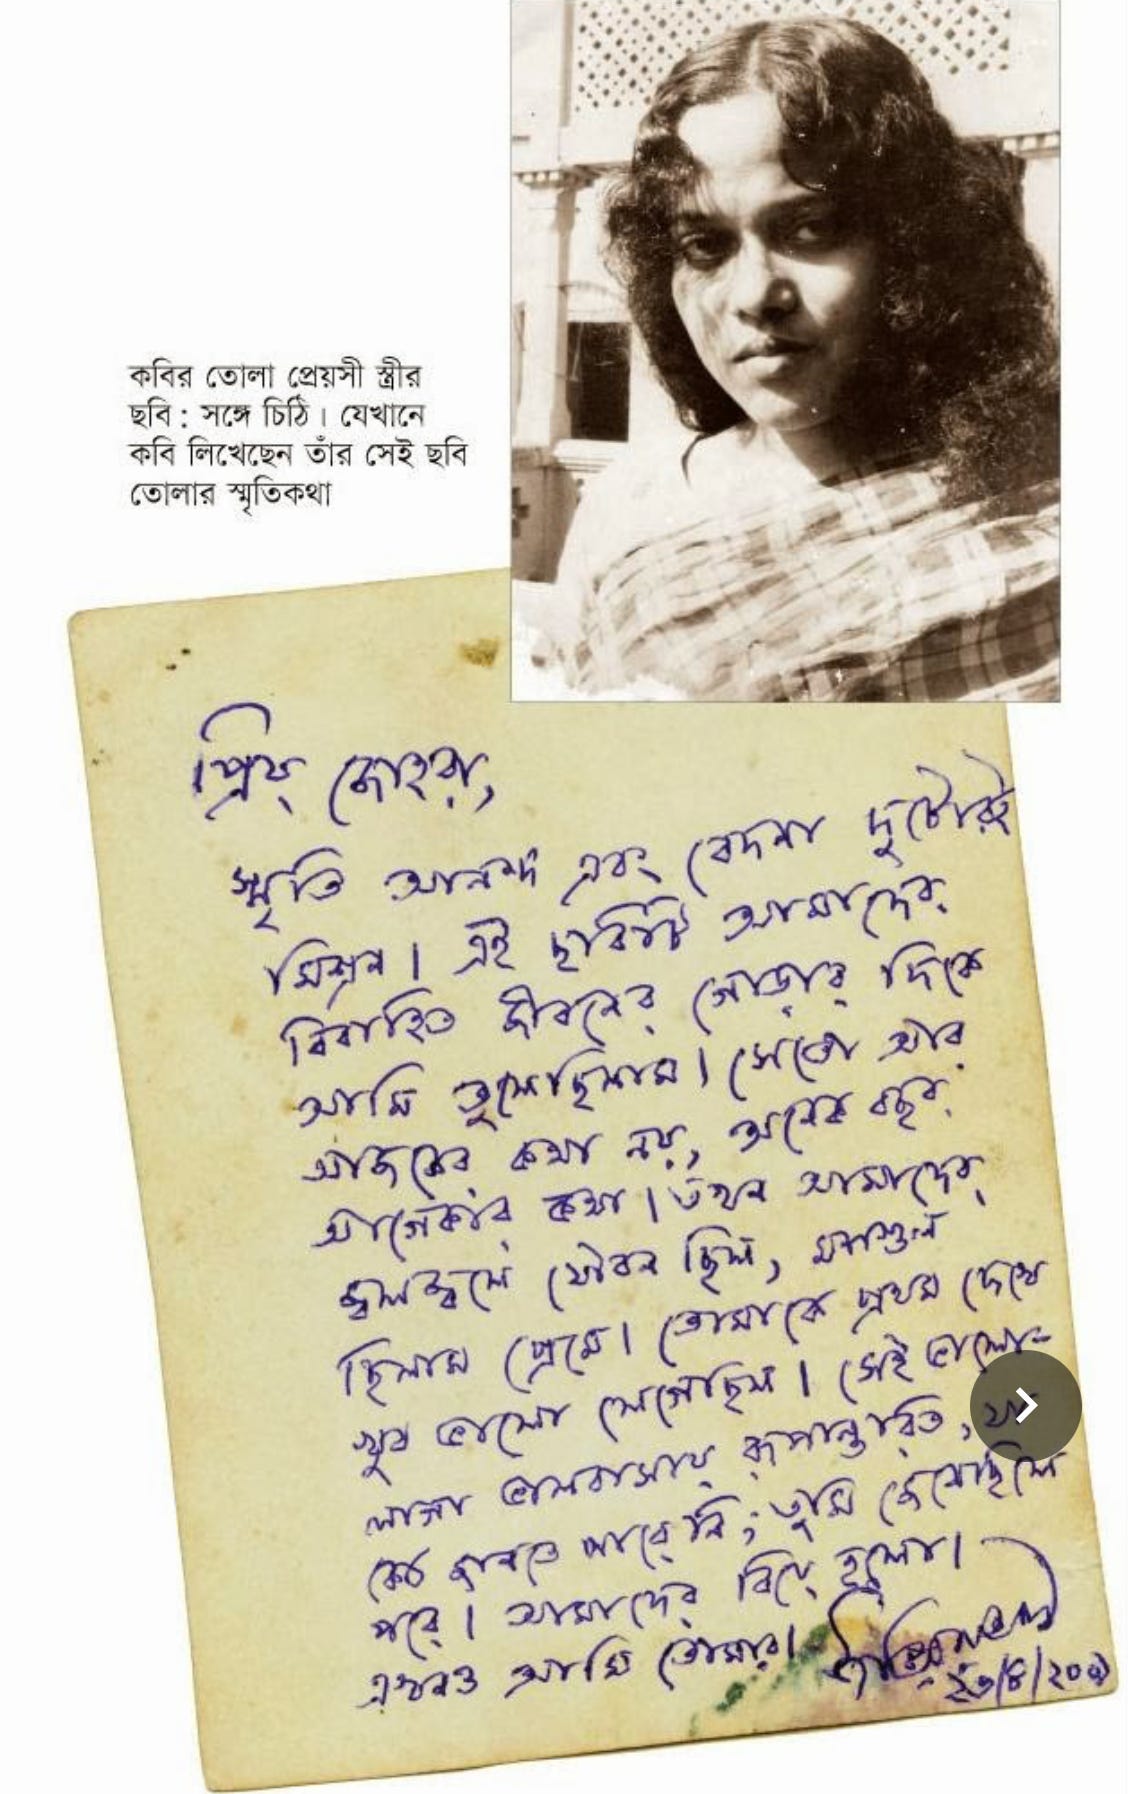 কবির তোলা প্রেয়সী স্ত্রীর
ছবি : সঙ্গে চিঠি। যেখানে
কবি লিখেছেন তাঁর সেই ছবি
তোলার স্মৃতিকথা
প্রিয় জোহরা,
স্মৃতি আনন্দ এবং বেদনা দুটোরই
মিশ্রন। এই ছবিটি আমাদের
বিবাহিত জীবনের গোড়ার দিকে
আমি তুলেছিলাম। সেতো আর
আজকের কথা নয়, অনেক বছর
আগেকার কথা। তখন আমাদের
জ্বলজ্বলে যৌবন ছিল, মশগুল
ছিলাম প্রেমে। তোমাকে প্রথম দেখে
খুব ভালো লেগেছিল। সেই ভালো-
লাগা ভালবাসায় রূপান্তরিত, যা
কেউ জানতে পারেনি; তুমি জেনেছিলে
পরে। আমাদের বিয়ে হলো।
এখনও আমি তোমার।